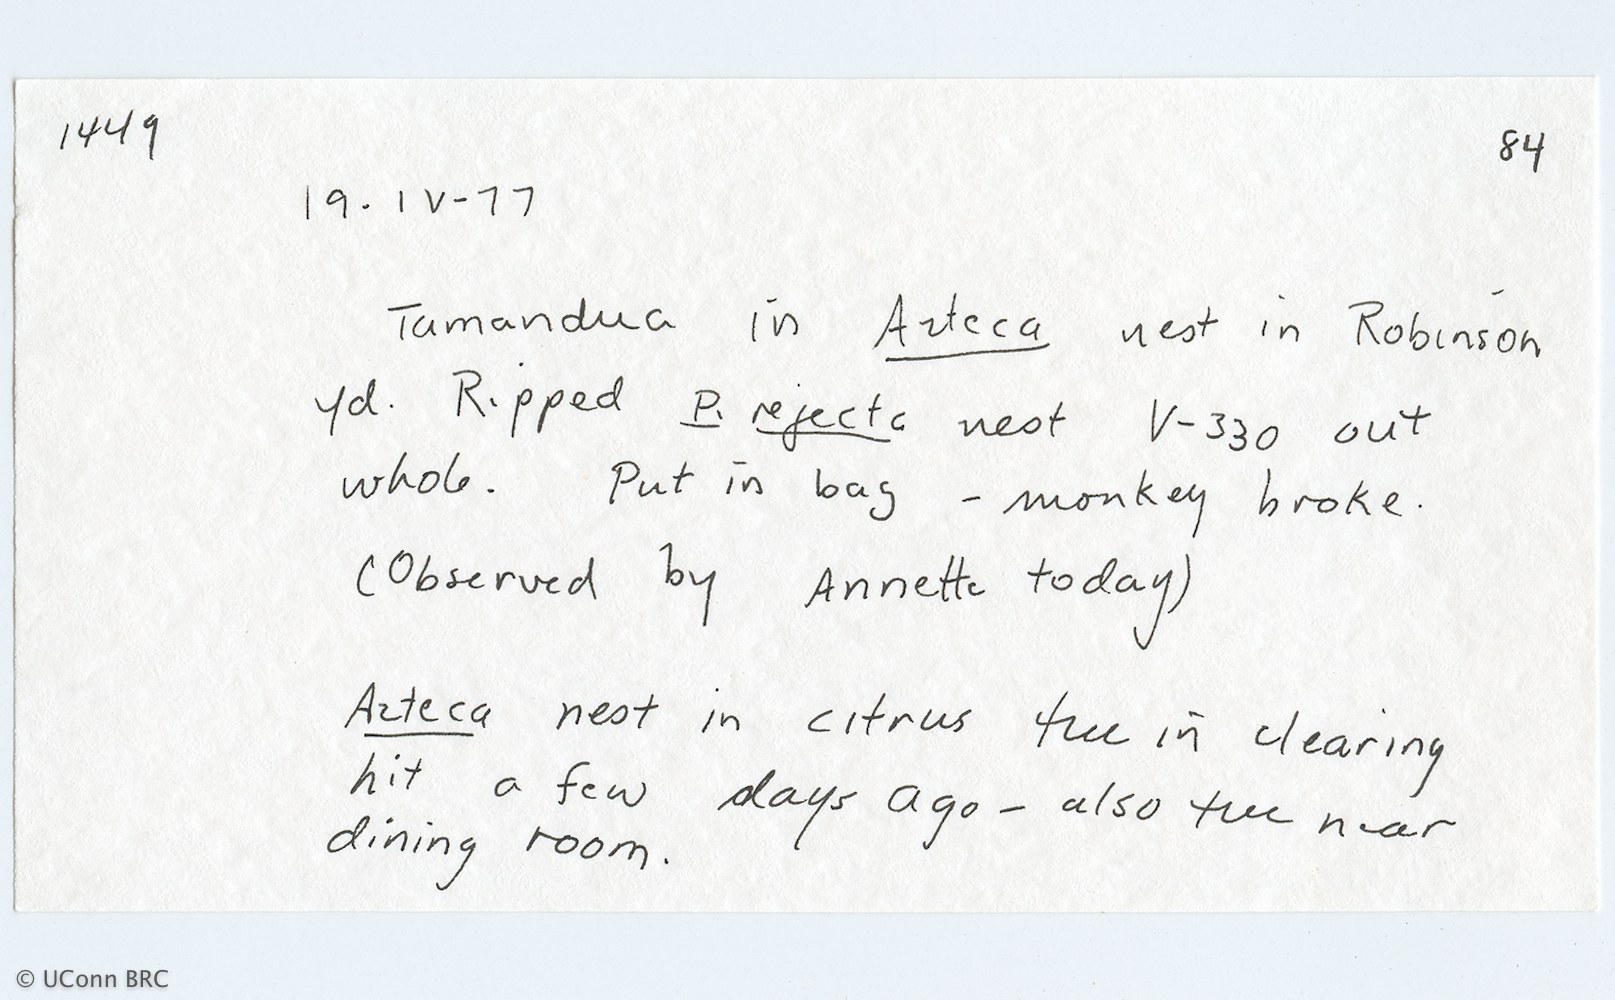 1449
84
19-IV-77
Tamandua in Azteca nest in Robinson
yd. Ripped P. rejecta nest V-330 out
whole. Put in bag - monkey broke.
(Observed by Annette today)
Azteca nest in citrus tree in clearing
hit a few days ago - also tree near
dining room.
© UConn BRC